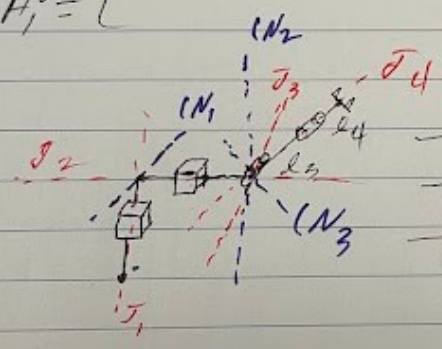 H₁⁰ = [
CN₂
J₃
J₄
CN₁
l₄
J₂
l₃
CN₃
J₁